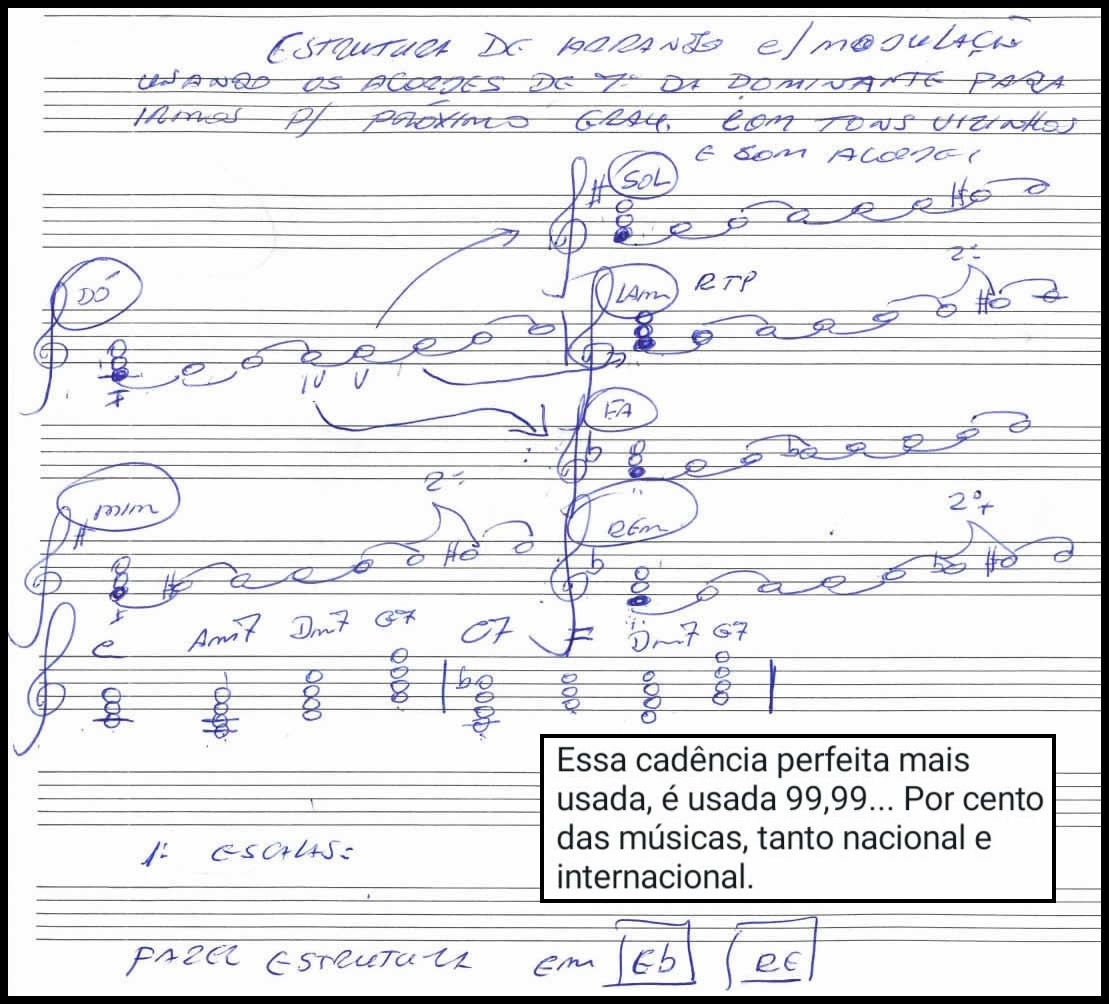 ESTRUTURA DE ARRANJO e/ MODULAÇÃO
USANDO OS ACORDES DE 7ª DA DOMINANTE PARA
IRMOS P/ PRÓXIMO GRAU. COM TONS VIZINHOS
E BOM ACORDE!
SOL
DÓ
LAm RTP 2ª
I IV V
FÁ
MIm 2ª
RÉm 2ª+
I
C Am7 Dm7 G7 C7 F Dm7 G7
Essa cadência perfeita mais
usada, é usada 99,99... Por cento
das músicas, tanto nacional e
internacional.
1ª ESCALAS:
FAZER ESTRUTURA em Eb RE